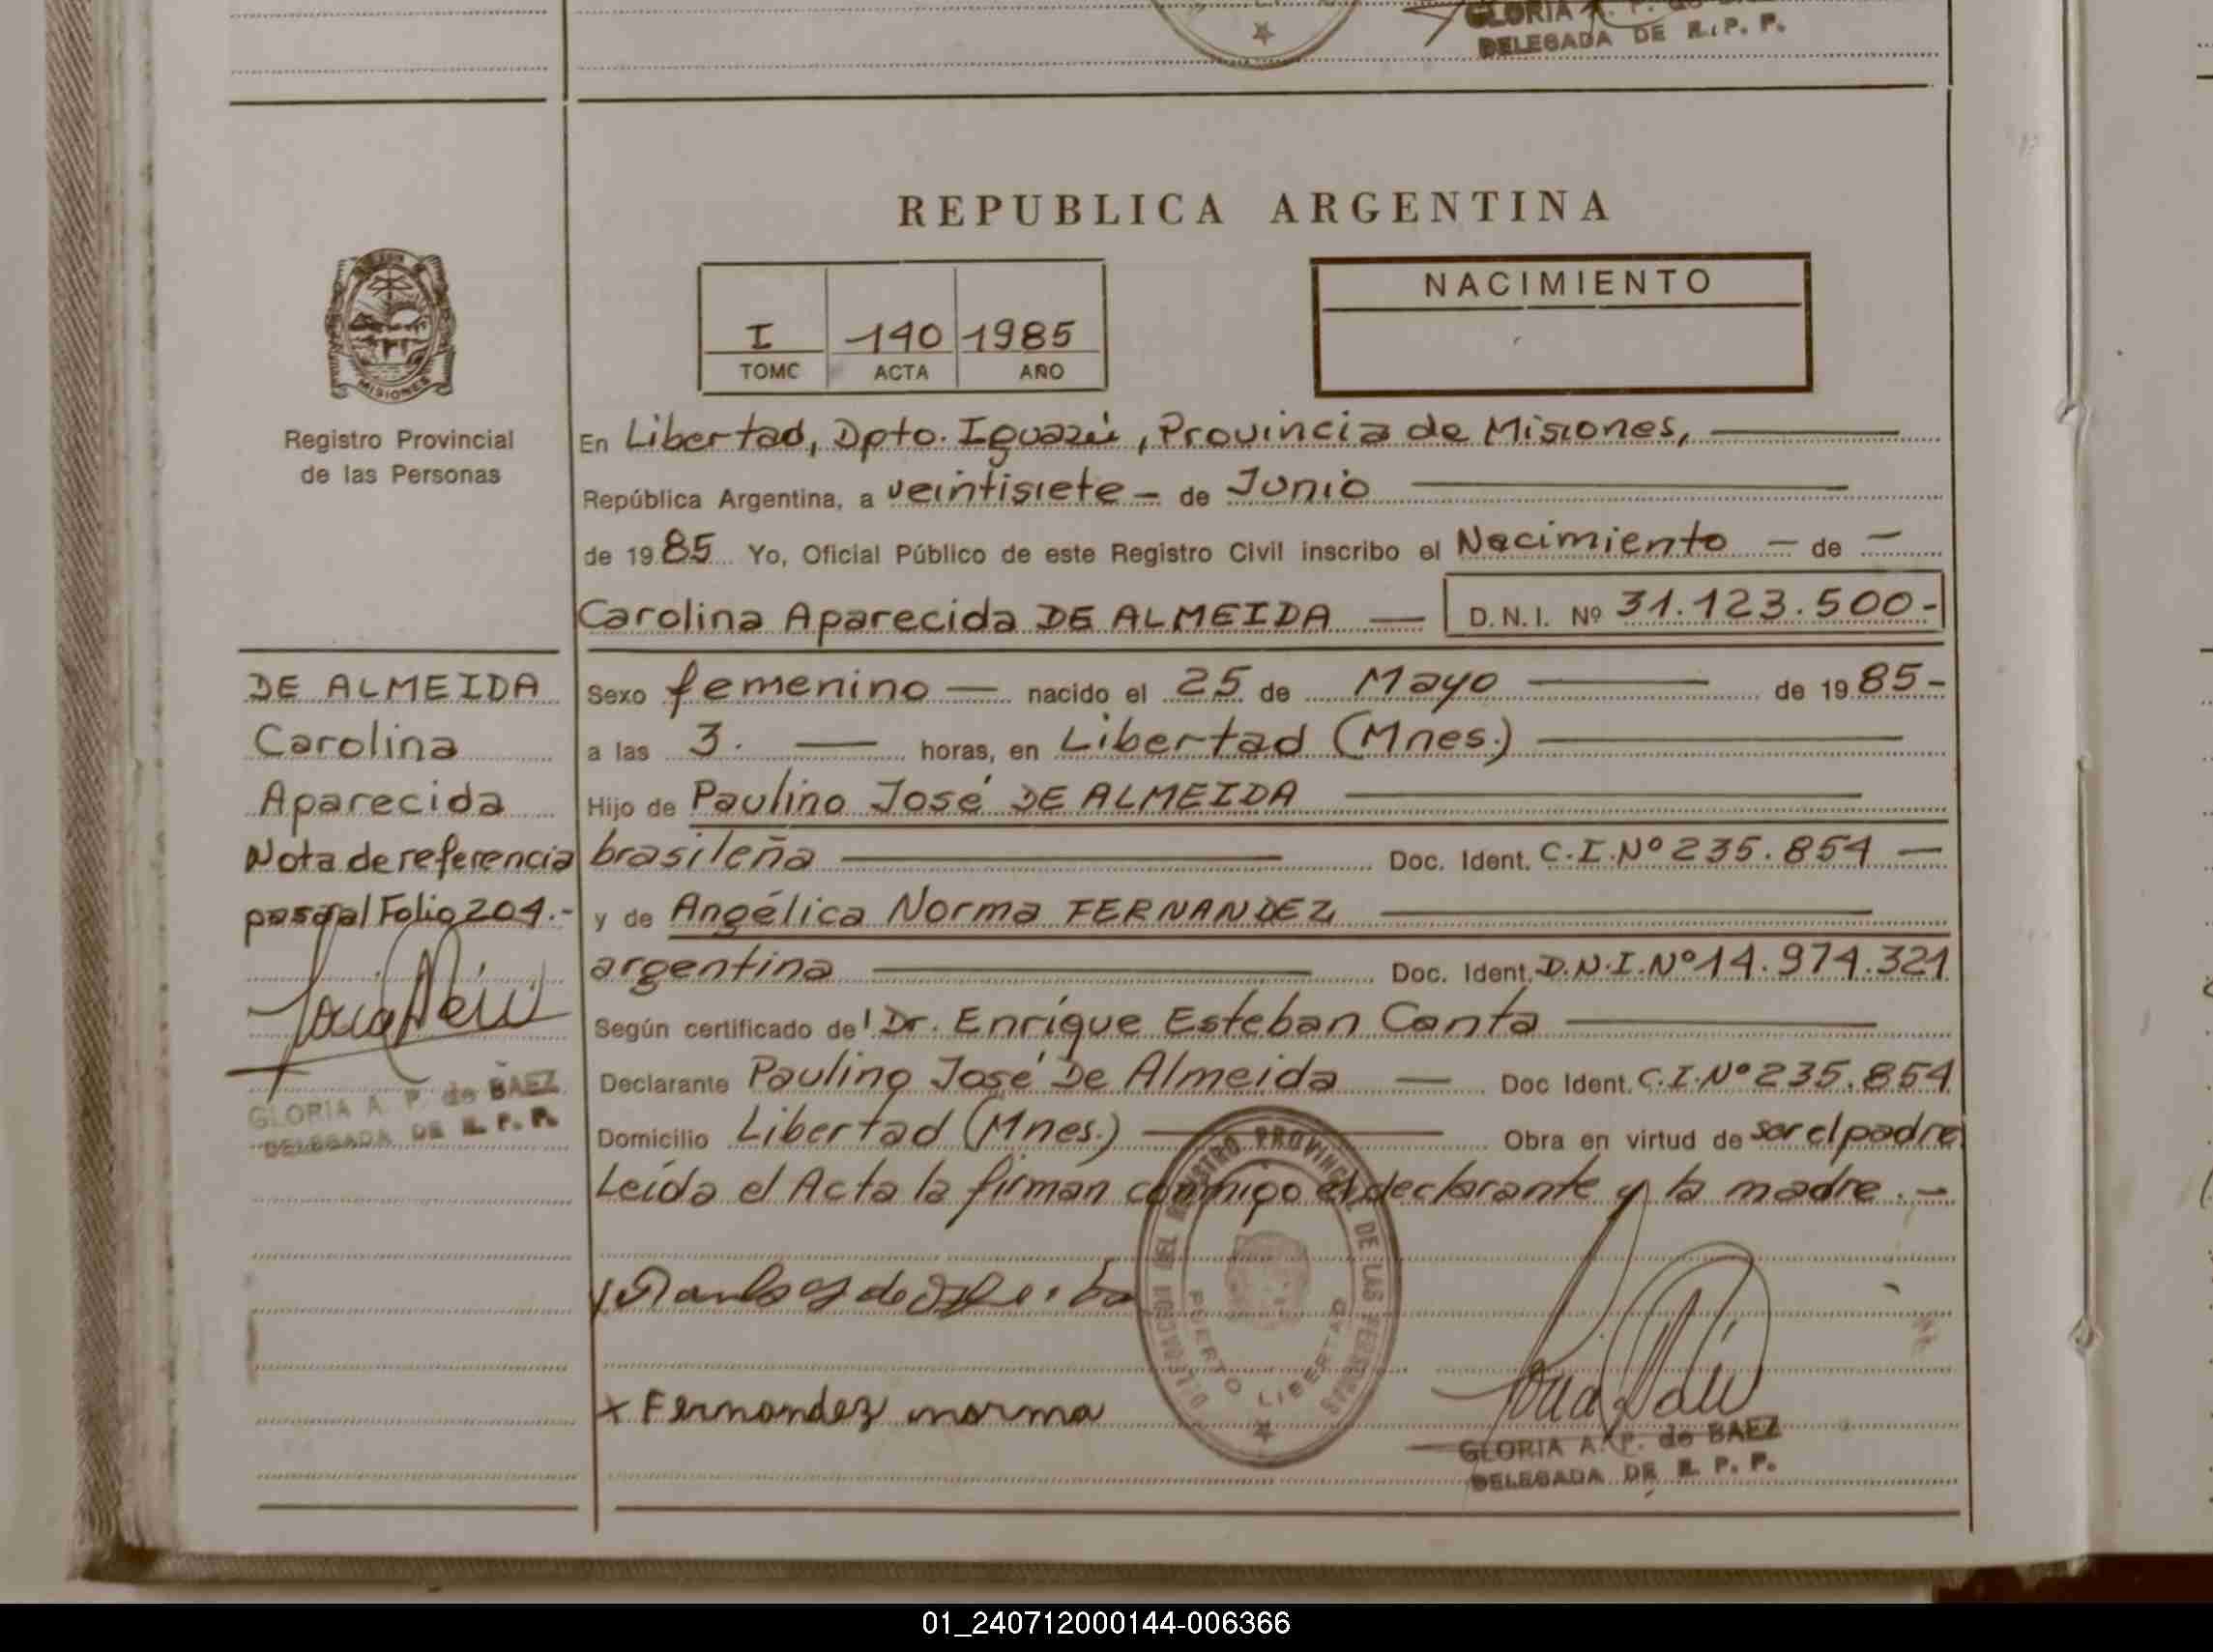 GLORIA A. P. de
DELEGADA DE R. P. P.
REPUBLICA ARGENTINA
NACIMIENTO
I 140 1985
TOMO ACTA AÑO
MISIONES
Registro Provincial
de las Personas
En Libertad, Dpto. Iguazú, Provincia de Misiones,
República Argentina, a veintisiete - de Junio
de 1985 Yo, Oficial Público de este Registro Civil inscribo el Nacimiento - de -
Carolina Aparecida DE ALMEIDA — D.N.I. Nº 31.123.500-
DE ALMEIDA
Carolina
Aparecida
Nota de referencia
pasa al Folio 204.-
GLORIA A. P. de BAEZ
DELEGADA DE R. P. P.
Sexo femenino — nacido el 25 de Mayo — de 1985-
a las 3. — horas, en Libertad (Mnes.)
Hijo de Paulino José DE ALMEIDA
brasileña — Doc. Ident. C.I.Nº 235.854 —
y de Angélica Norma FERNANDEZ
argentina — Doc. Ident. D.N.I.Nº 14.974.321
Según certificado del Dr. Enrique Esteban Canta
Declarante Paulino José De Almeida — Doc Ident. C.I.Nº 235.854
Domicilio Libertad (Mnes.) — Obra en virtud de ser el padre
Leída el Acta la firman conmigo el declarante y la madre.-
DELEGACION DEL REGISTRO PROVINCIAL DE LAS PERSONAS
PUERTO LIBERTAD
x Fernandez norma
GLORIA A. P. de BAEZ
DELEGADA DE R. P. P.
01_240712000144-006366